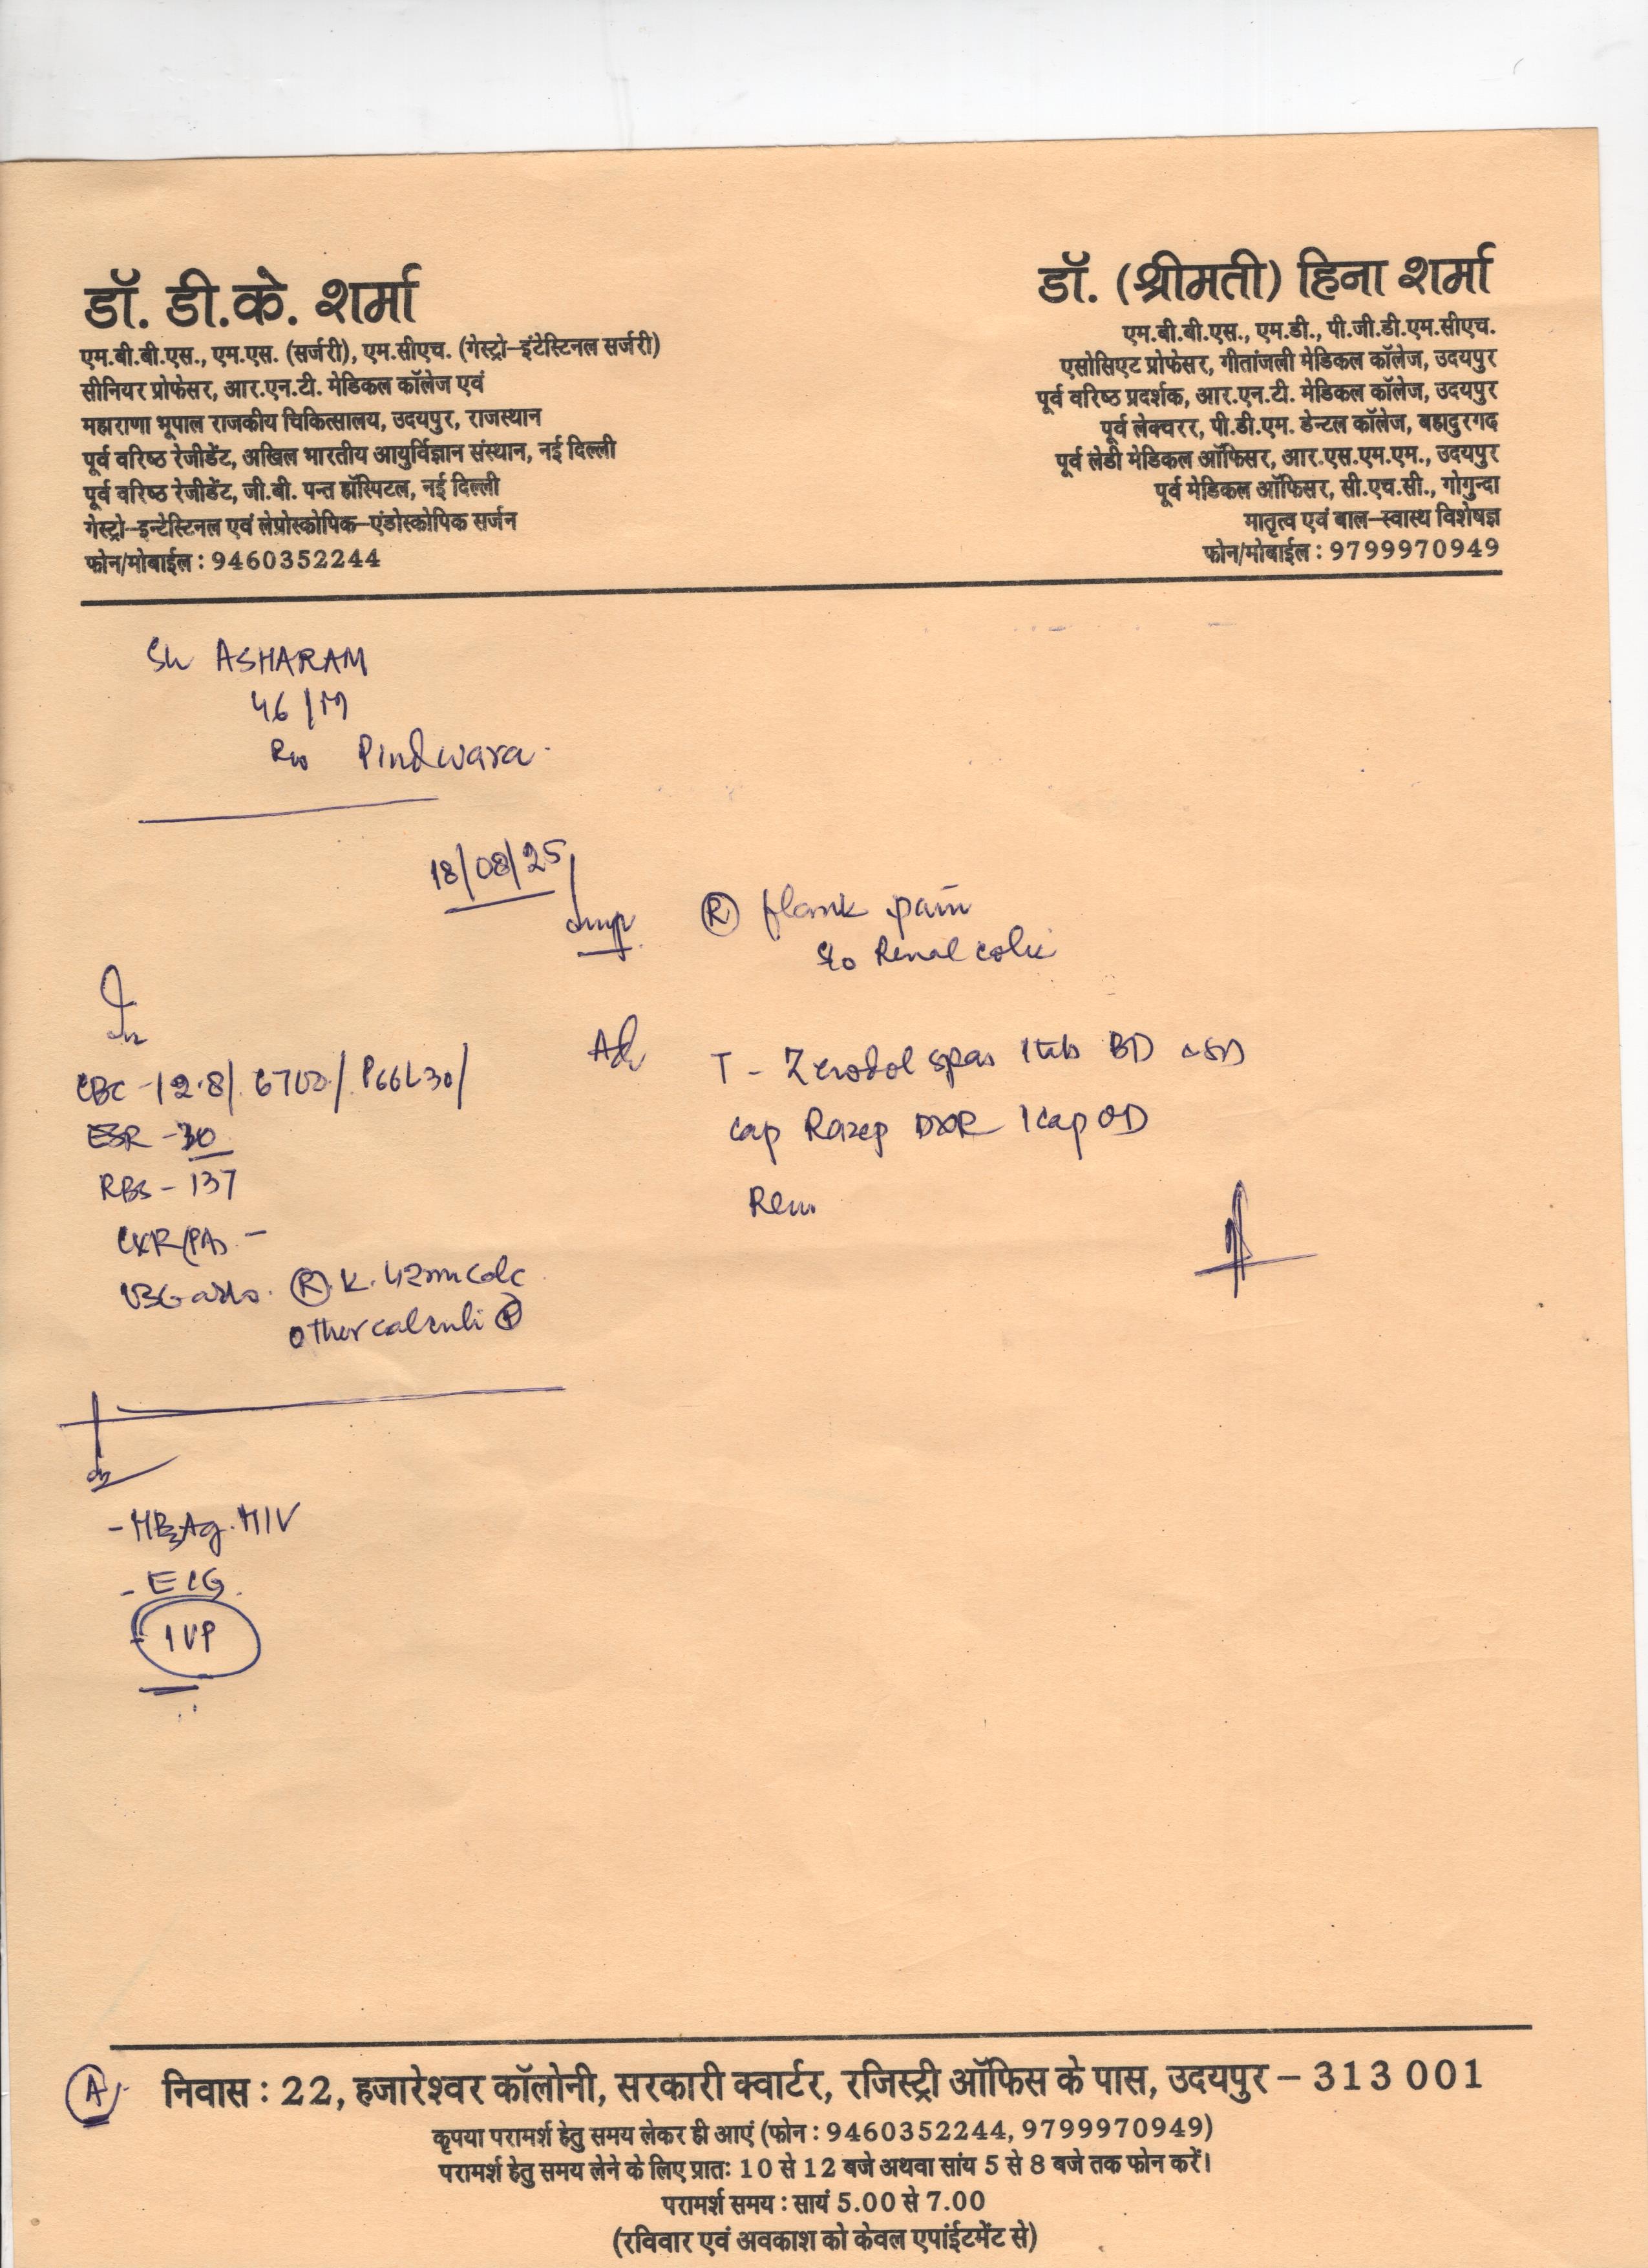 डॉ. डी.के. शर्मा
एम.बी.बी.एस., एम.एस. (सर्जरी), एम.सीएच. (गेस्ट्रो-इंटेस्टिनल सर्जरी)
सीनियर प्रोफेसर, आर.एन.टी. मेडिकल कॉलेज एवं
महाराणा भूपाल राजकीय चिकित्सालय, उदयपुर, राजस्थान
पूर्व वरिष्ठ रेजीडेंट, अखिल भारतीय आयुर्विज्ञान संस्थान, नई दिल्ली
पूर्व वरिष्ठ रेजीडेंट, जी.बी. पन्त हॉस्पिटल, नई दिल्ली
गेस्ट्रो-इन्टेस्टिनल एवं लेप्रोस्कोपिक-एंडोस्कोपिक सर्जन
फोन/मोबाईल : 9460352244
डॉ. (श्रीमती) हिना शर्मा
एम.बी.बी.एस., एम.डी., पी.जी.डी.एम.सीएच.
एसोसिएट प्रोफेसर, गीतांजली मेडिकल कॉलेज, उदयपुर
पूर्व वरिष्ठ प्रदर्शक, आर.एन.टी. मेडिकल कॉलेज, उदयपुर
पूर्व लेक्चरर, पी.डी.एम. डेन्टल कॉलेज, बहादुरगढ
पूर्व लेडी मेडिकल ऑफिसर, आर.एस.एम.एम., उदयपुर
पूर्व मेडिकल ऑफिसर, सी.एच.सी., गोगुन्दा
मातृत्व एवं बाल-स्वास्थ विशेषज्ञ
फोन/मोबाईल : 9799970949
Sh ASHARAM
46/M
R/o Pindwara
18/08/25
Imp
(R) flank pain
s/o Renal colic
CBC - 12.8/ 6700/ P66L30/
ESR - 30
RBS - 137
CXR(PA) -
USG (R) K. 42mm calc
other calculi (P)
Adv
T - Zerodol spas 1 tab BD
Cap Razep DSR 1 cap OD
- HBsAg. HIV
- ECG
- IVP
A
निवास : 22, हजारेश्वर कॉलोनी, सरकारी क्वार्टर, रजिस्ट्री ऑफिस के पास, उदयपुर – 313 001
कृपया परामर्श हेतु समय लेकर ही आएं (फोन : 9460352244, 9799970949)
परामर्श हेतु समय लेने के लिए प्रातः 10 से 12 बजे अथवा सांय 5 से 8 बजे तक फोन करें।
परामर्श समय : सायं 5.00 से 7.00
(रविवार एवं अवकाश को केवल एपांईटमेंट से)